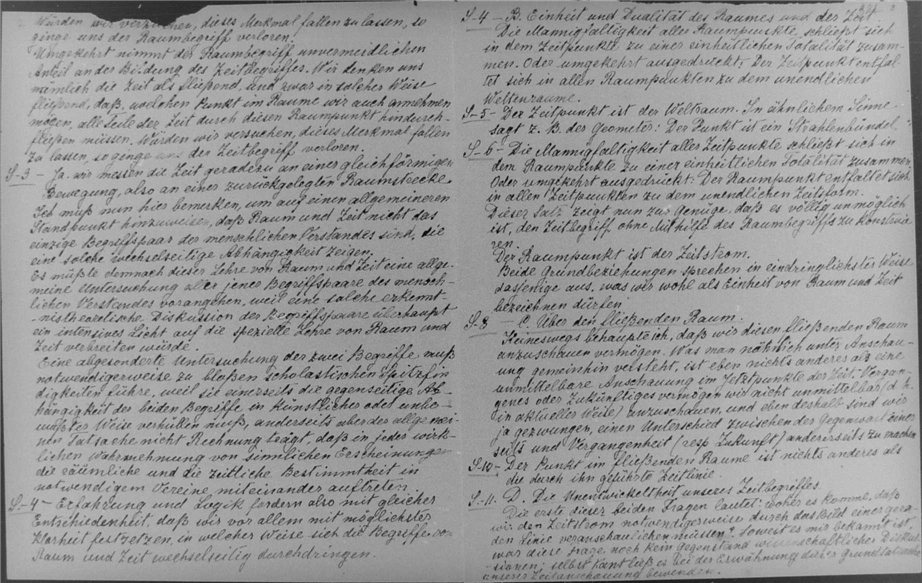 Würden wir versuchen, dieses Merkmal fallen zu lassen, so
ginge uns der Raumbegriff verloren.
Umgekehrt nimmt der Raumbegriff unvermeidlichen
Anteil an der Bildung des Zeitbegriffes. Wir denken uns
nämlich die Zeit als fließend, und zwar in solcher Weise
fließend, daß, welchen Punkt im Raume wir auch annehmen
mögen, alle Teile der Zeit durch diesen Raumpunkt hindurch-
fließen müssen. Würden wir versuchen, dieses Merkmal fallen
zu lassen, so ginge uns der Zeitbegriff verloren.
S-3 - Ja, wir messen die Zeit geradezu an einer gleichförmigen
Bewegung, also an einer zurückgelegten Raumstrecke.
Ich muß nun hier bemerken, um auf einen allgemeineren
Standpunkt hinzuweisen, daß Raum und Zeit nicht das
einzige Begriffspaar der menschlichen Verstandes sind, die
eine solche wechselseitige Abhängigkeit zeigen.
Es müßte demnach dieser Lehre von Raum und Zeit eine allge-
meine Untersuchung aller jener Begriffspaare des mensch-
lichen Verstandes vorangehen, weil eine solche erkennt-
nistheoretische Diskussion der Begriffspaare überhaupt
ein intensives Licht auf die spezielle Lehre von Raum und
Zeit verbreiten würde.
Eine abgesonderte Untersuchung der zwei Begriffe muß
notwendigerweise zu bloßen scholastischen Spitzfin-
digkeiten führe, weil sie einerseits die gegenseitige Ab-
hängigkeit der beiden Begriffe in künstlicher oder unbe-
wußter Weise verhüllen muß, anderseits aber der allgemei-
nen Tatsache nicht Rechnung trägt, daß in jeder wirk-
lichen Wahrnehmung von sinnlichen Erscheinungen
die räumliche und die zeitliche Bestimmtheit in
notwendigem Vereine miteinander auftreten.
S-4 - Erfahrung und Logik fordern also mit gleicher
Entschiedenheit, daß wir vor allem mit möglichster
Klarheit festsetzen, in welcher Weise sich die Begriffe von
Raum und Zeit wechselseitig durchdringen.
S-4 - B. Einheit und Dualität des Raumes und der Zeit.
Die Mannigfaltigkeit aller Raumpunkte, schließt sich
in dem Zeitpunkte zu einer einheitlichen Totalität zusam-
men. Oder umgekehrt ausgedrückt: Der Zeitpunkt entfal-
tet sich in allen Raumpunkten zu dem unendlichen
Weltenraume.
S-5 - Der Zeitpunkt ist der Weltraum. In ähnlichem Sinne
sagt z. B. der Geometer: Der Punkt ist ein Strahlenbündel.
S-6 - Die Mannigfaltigkeit aller Zeitpunkte schließt sich in
dem Raumpunkte zu einer einheitlichen Totalität zusammen.
Oder umgekehrt ausgedrückt: Der Raumpunkt entfaltet sich
in allen Zeitpunkten zu dem unendlichen Zeitstrom.
Dieser Satz zeigt nun zur Genüge, daß es völlig unmöglich
ist, den Zeitbegriff ohne Mithilfe des Raumbegriffs zu konstruie-
ren.
Der Raumpunkt ist der Zeitstrom.
Beide Grundbeziehungen sprechen in eindringlichster Weise
dasjenige aus, was wir wohl als Einheit von Raum und Zeit
bezeichnen dürfen.
S-8 - C. Über den fließenden Raum.
Keineswegs behaupte ich, daß wir diesen fließenden Raum
anzuschauen vermögen. Was man nähmlich unter Anschau-
ung gemeinhin versteht, ist eben nichts anderes als eine
unmittelbare Anschauung im Jetztpunkte der Zeit. Vergan-
genes oder Zukünftiges vermögen wir nicht unmittelbar (d. h.
in aktueller Weise) anzuschauen, und eben deshalb sind wir
ja gezwungen, einen Unterschied zwischen der Gegenwart einer-
seits und Vergangenheit (resp. Zukunft) andererseits zu machen.
S-10 - Der Punkt im fließenden Raume ist nichts anderes als
die durch ihn geführte Zeitlinie
S-11 - D. Die Unentwickeltheit unseres Zeitbegriffes.
Die erste dieser beiden Fragen lautet: Woher es komme, daß
wir den Zeitstrom notwendigerweise durch das Bild einer gera-
den Linie veranschaulichen müssen? Soweit es mir bekannt ist,
war diese Frage noch kein Gegenstand wissenschaftlicher Diskus-
sionen; selbst Kant ließ es bei der Erwähnung dieser Grundtatsache
unserer Zeitanschauung bewenden.